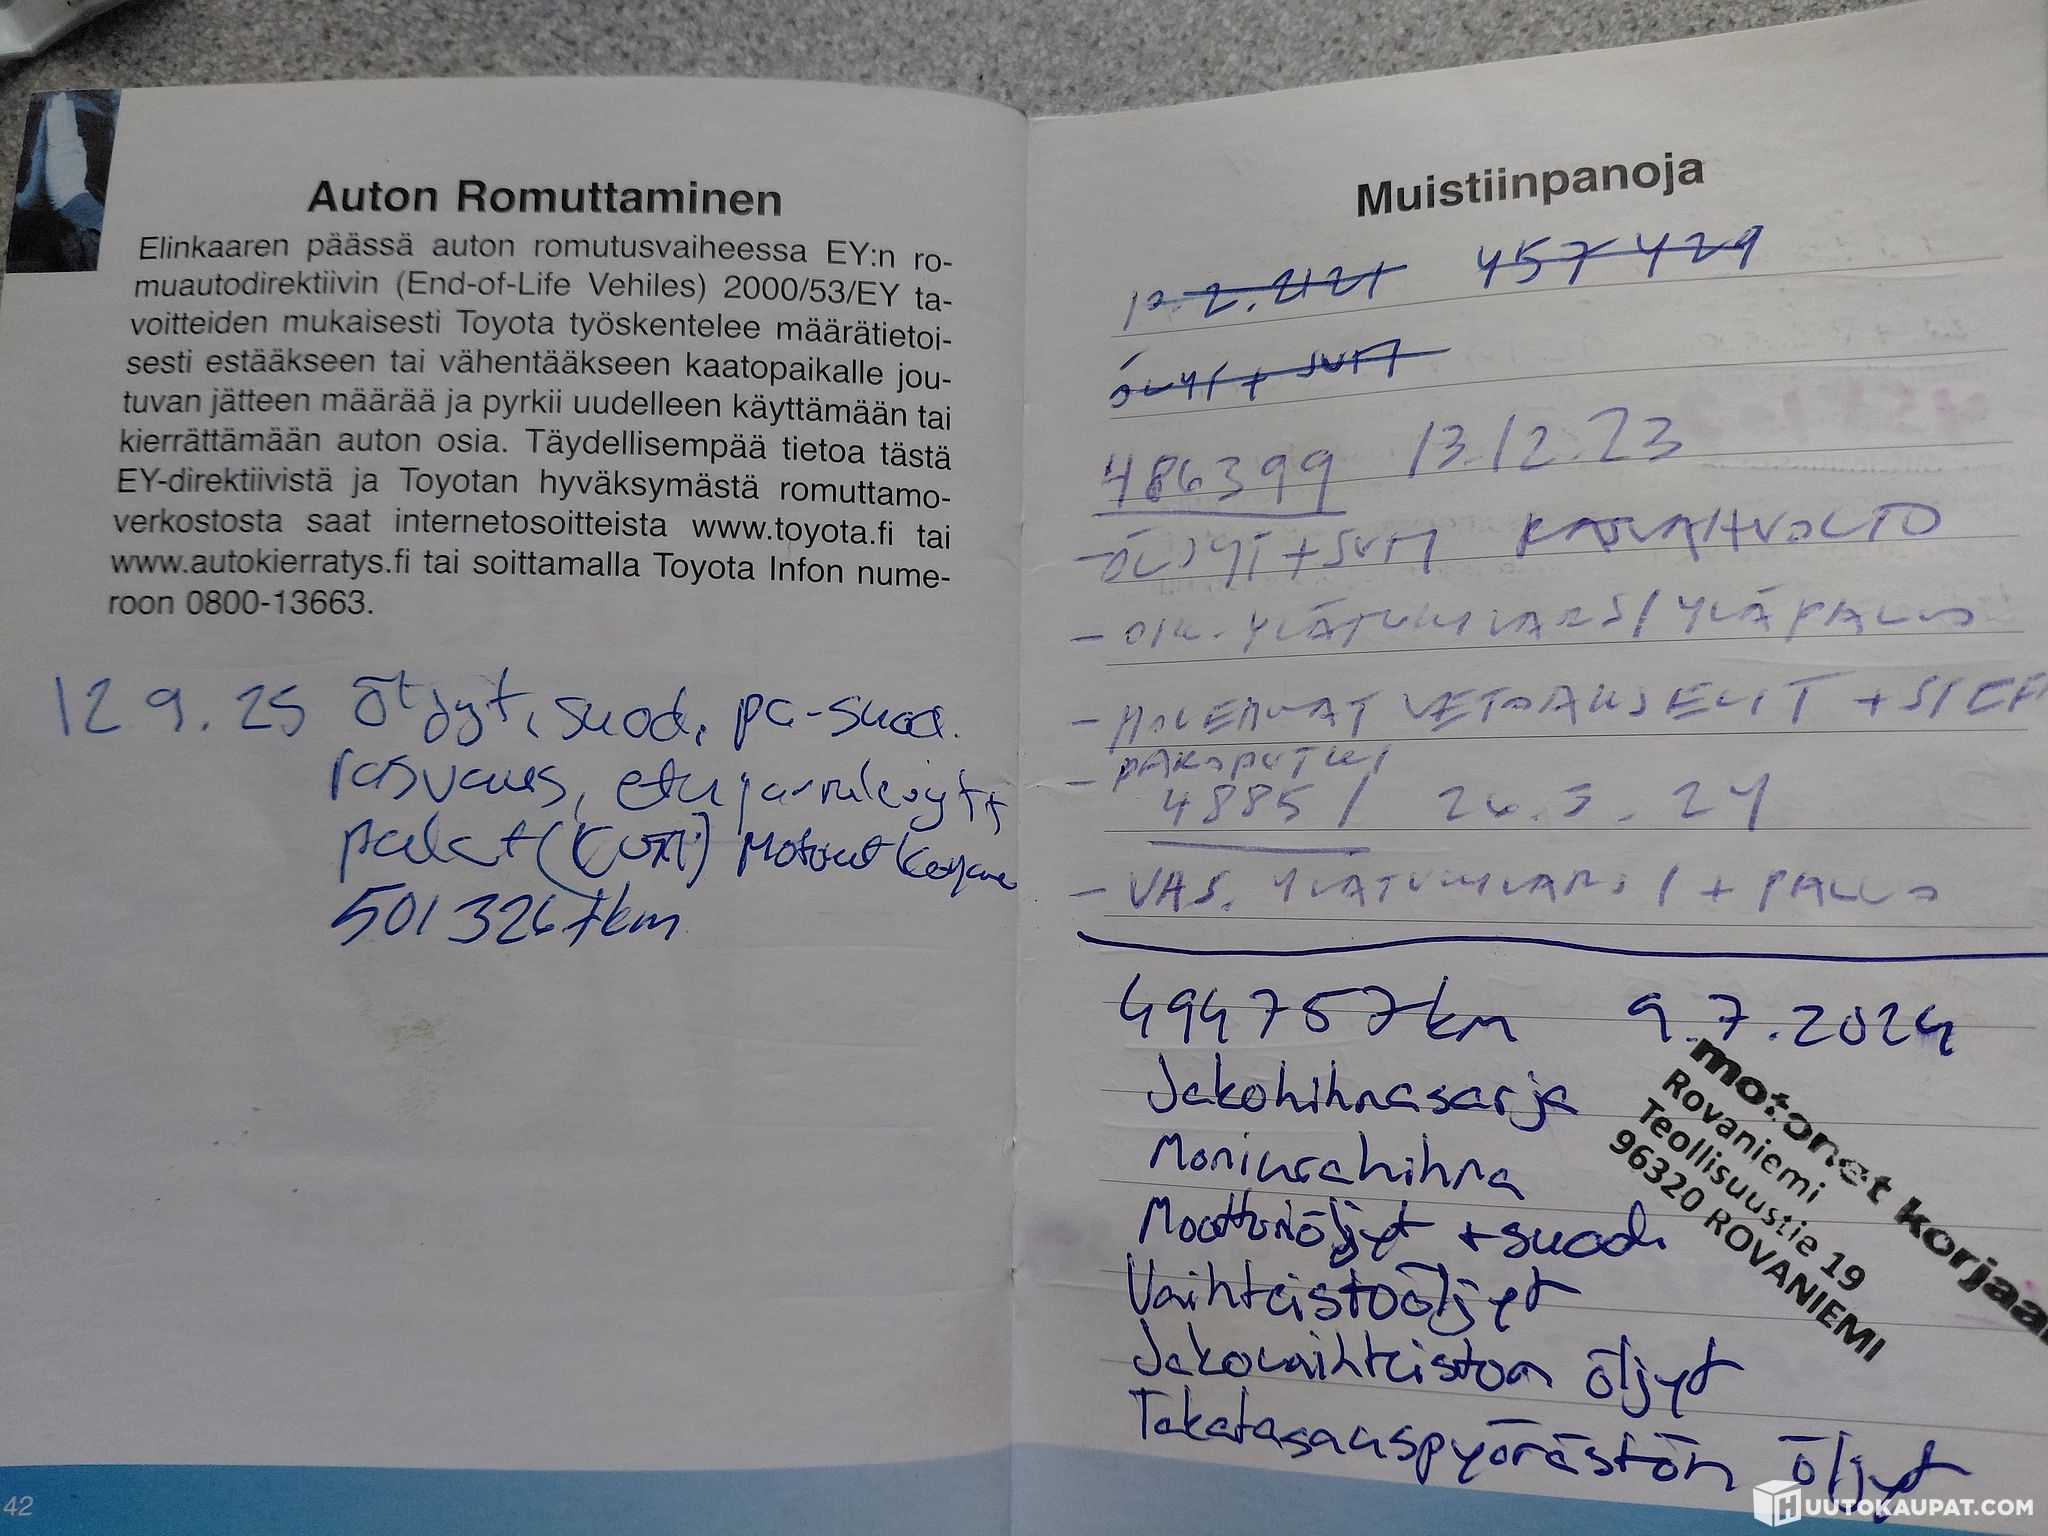 Auton Romuttaminen
Elinkaaren päässä auton romutusvaiheessa EY:n ro-
muautodirektiivin (End-of-Life Vehiles) 2000/53/EY ta-
voitteiden mukaisesti Toyota työskentelee määrätietoi-
sesti estääkseen tai vähentääkseen kaatopaikalle jou-
tuvan jätteen määrää ja pyrkii uudelleen käyttämään tai
kierrättämään auton osia. Täydellisempää tietoa tästä
EY-direktiivistä ja Toyotan hyväksymästä romuttamo-
verkostosta saat internetosoitteista www.toyota.fi tai
www.autokierratys.fi tai soittamalla Toyota Infon nume-
roon 0800-13663.
12.9.25 Öljyt, suod, pa-suod.
rasvaus,
palat (
Motonet
501326 tkm
42
Muistiinpanoja
457429
486399 13.12.23
- ÖLJYT + SUM
- OIK. YLÄTUKIVARSI / YLÄPALLO
- MOLEMMAT VETOAKSELIT +
- PAKOPUTKI
48851 .24
- VAS. YLÄTUKIVARSI + PALLO
494757 km 9.7.2024
Jakohihnasarja
Moniurahihna
Moottoriöljyt + suod.
Vaihteistoöljyt
Jakovaihteiston öljyt
Takatasauspyörästön öljyt
motonet korjaa
Rovaniemi
Teollisuustie 19
96320 ROVANIEMI
HUUTOKAUPAT.COM